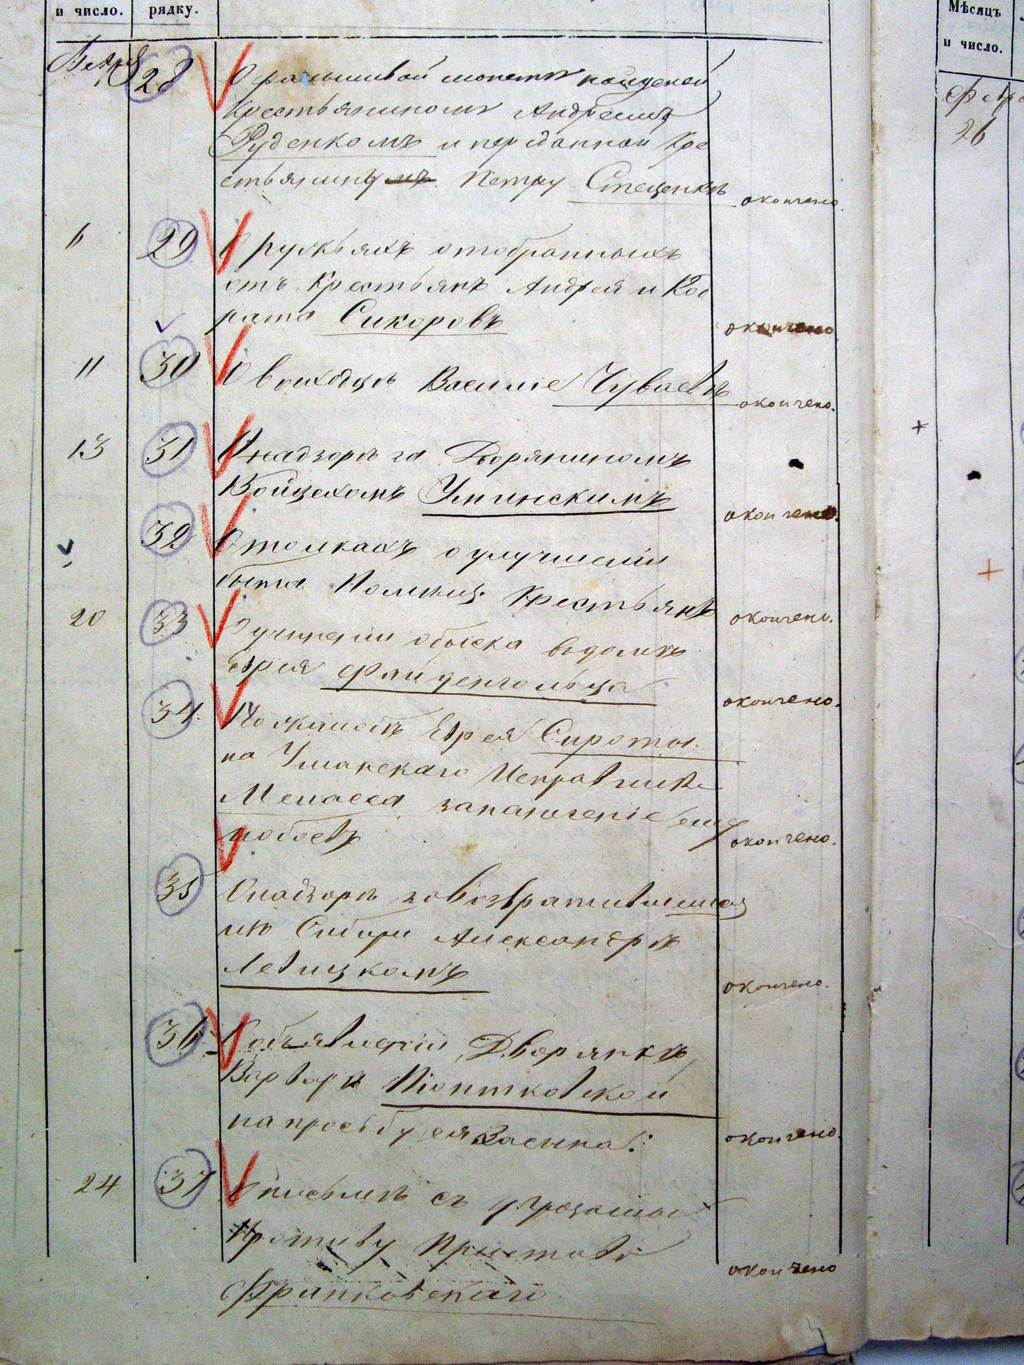 и число.
рядку.
28
О фальшивой монетѣ найденой
Крестьяниномъ Андреемъ
Руденкомъ и переданной Кре
стьянину Петру Стеценкѣ
окончено
6
29
О ружьяхъ отобранныхъ
отъ Крестьянъ Андрея и Код
рата Сикоровъ
окончено
11
30
О выходцѣ Василіе Чуваевѣ
окончено.
13
31
О надзорѣ за Дворяниномъ
Войцехомъ Уминскимъ
окончено.
32
О толкахъ о улучшеніи
быта Помѣщ: Крестьянъ
окончено.
20
33
О учиненіи обыска въ домѣ
Еврея Фрайденгольца
окончено.
34.
По жалобѣ Еврея Сироты
на Уманскаго Исправника
за нанесеніе ему
побоевъ
окончено.
35
О надзорѣ за возвратившимся
изъ Сибири Александрѣ
Левицкомъ
окончено.
36
Объ объявленіи Дворянкѣ
Варварѣ
на просьбу ея
окончено.
24
37
О письмѣ съ угрозами
противу Пристава
Франковскаго
окончено
Мѣсяцъ
и число.
26